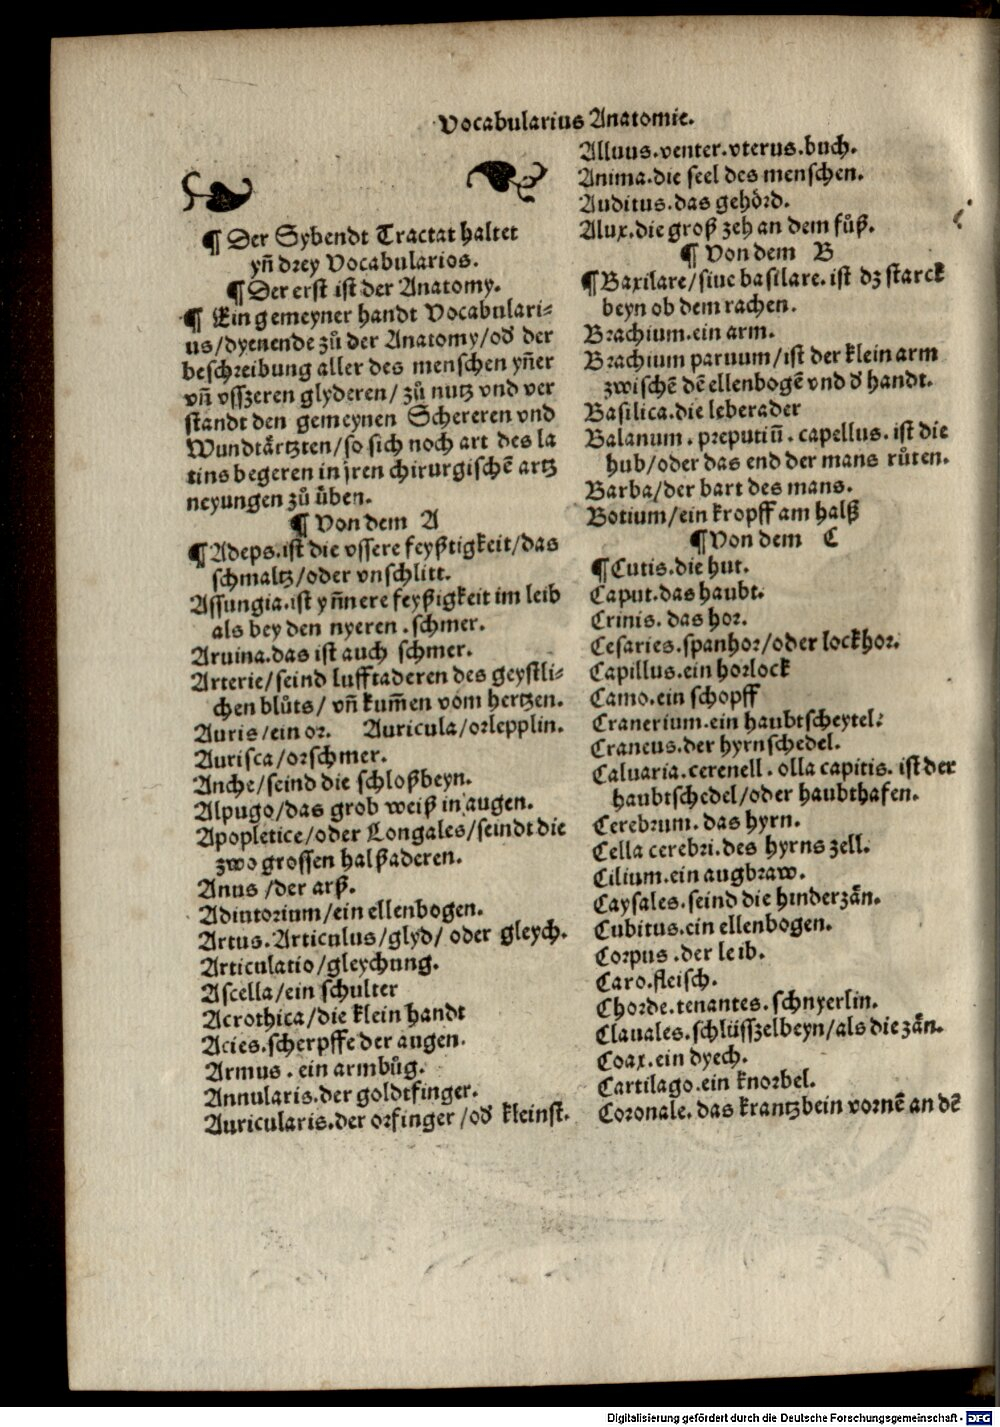 Vocabularius Anatomie.
¶ Der Sybendt Tractat haltet
yñ drey Vocabularios.
¶ Der erst ist der Anatomy.
¶ Ein gemeyner handt Vocabulari⸗
us/dyenende zů der Anatomy/od̕ der
beschreibung aller des menschen yñer
vñ vsszeren glyderen/ zů nutz vnd ver
standt den gemeynen Schereren vnd
Wundtärtzten/so sich noch art des la
tins begeren in jren chirurgischē artz
neyungen zů üben.
¶ Von dem A
¶ Adeps.ist die vssere feyßtigkeit/das
schmaltz/oder vnschlitt.
Assungia.ist yñnere feyßigkeit im leib
als bey den nyeren .schmer.
Aruina.das ist auch schmer.
Arterie/seind lufftaderen des geystli⸗
chen blůts/ vñ kum̃en vom hertzen.
Auris/ein or. Auricula/orlepplin.
Aurisca/orschmer.
Anche/seind die schloßbeyn.
Alpugo/das grob weiß in augen.
Apopletice/oder Longales/seindt die
zwo grossen halßaderen.
Anus /der arß.
Adiutorium/ein ellenbogen.
Artus.Articulus/glyd/ oder gleych.
Articulatio/gleychung.
Ascella/ein schulter
Acrothica/die klein handt
Acies.scherpffe der augen.
Armus . ein armbůg.
Annularis.der goldtfinger.
Auricularis.der orfinger /od̕ kleinst.
Alluus.venter.vterus.buch.
Anima.die seel des menschen.
Auditus.das gehörd.
Alux.die groß zeh an dem fůß.
¶ Von dem B
¶ Baxilare/siue basilare. ist dz starck
beyn ob dem rachen.
Brachium.ein arm.
Brachium paruum/ist der klein arm
zwischē dē ellenbogē vnd d̕ handt.
Basilica.die leberader
Balanum . preputiū . capellus. ist die
hub/oder das end der mans růten.
Barba/der bart des mans.
Botium/ein kropff am halß
¶ Von dem C
¶ Cutis.die hut.
Caput.das haubt.
Crinis. das hor.
Cesaries.spanhor/oder lockhor.
Capillus.ein horlock
Camo.ein schopff
Cranerium.ein haubtscheytel.
Craneus.der hyrnschedel.
Caluaria.cerenell . olla capitis. ist der
haubtschedel/oder haubthafen.
Cerebrum. das hyrn.
Cella cerebri.des hyrns zell.
Cilium.ein augbraw.
Caysales.seind die hinderzän.
Cubitus.ein ellenbogen.
Corpus .der leib.
Caro.fleisch.
Chorde.tenantes. schnyerlin.
Clauales.schlüsszelbeyn/als die zän.
Coax.ein dyech.
Cartilago.ein knorbel.
Coronale. das krantzbein vornē an dē
Digitalisierung gefördert durch die Deutsche Forschungsgemeinschaft - DFG